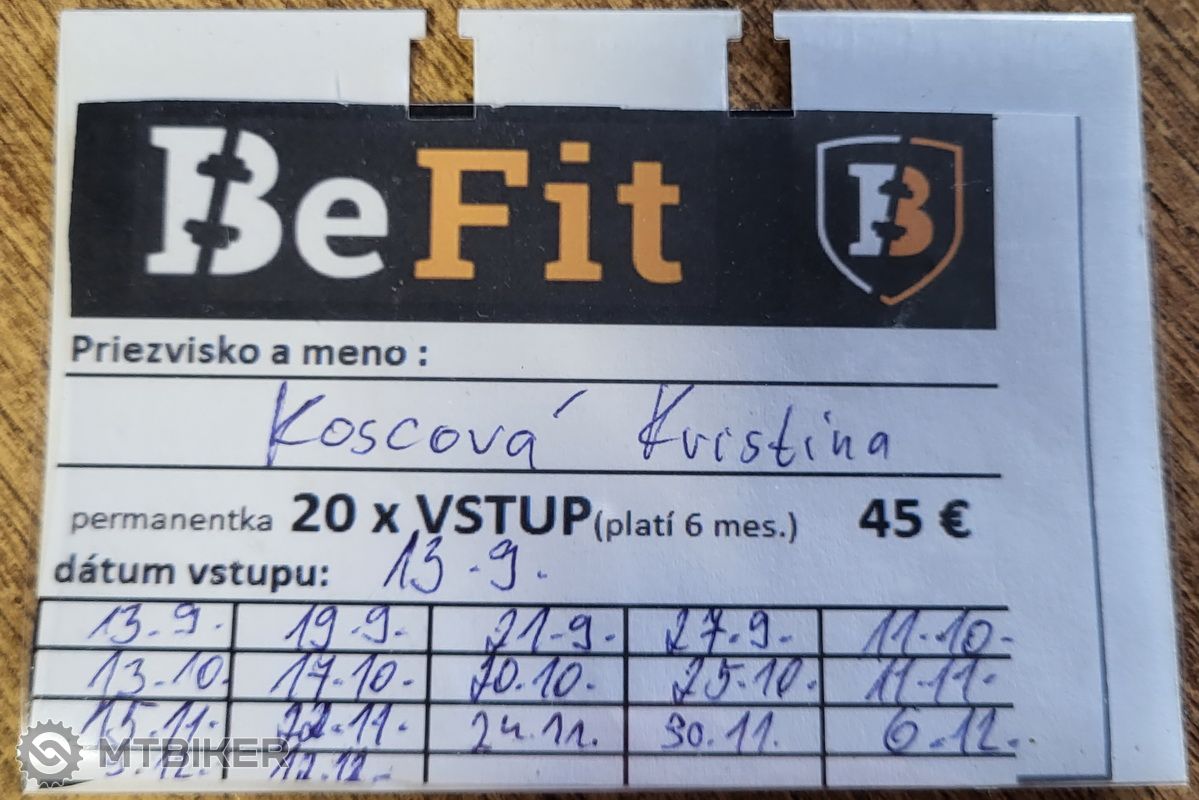 BeFit B
Priezvisko a meno :
Koscová Kristina
permanentka 20 x VSTUP (platí 6 mes.) 45 €
dátum vstupu: 13.9.
13.9. 19.9. 21.9. 27.9. 11.10.
13.10. 17.10. 20.10. 25.10. 11.11.
15.11. 22.11. 24.11. 30.11. 6.12.
MTBIKER
12.12.